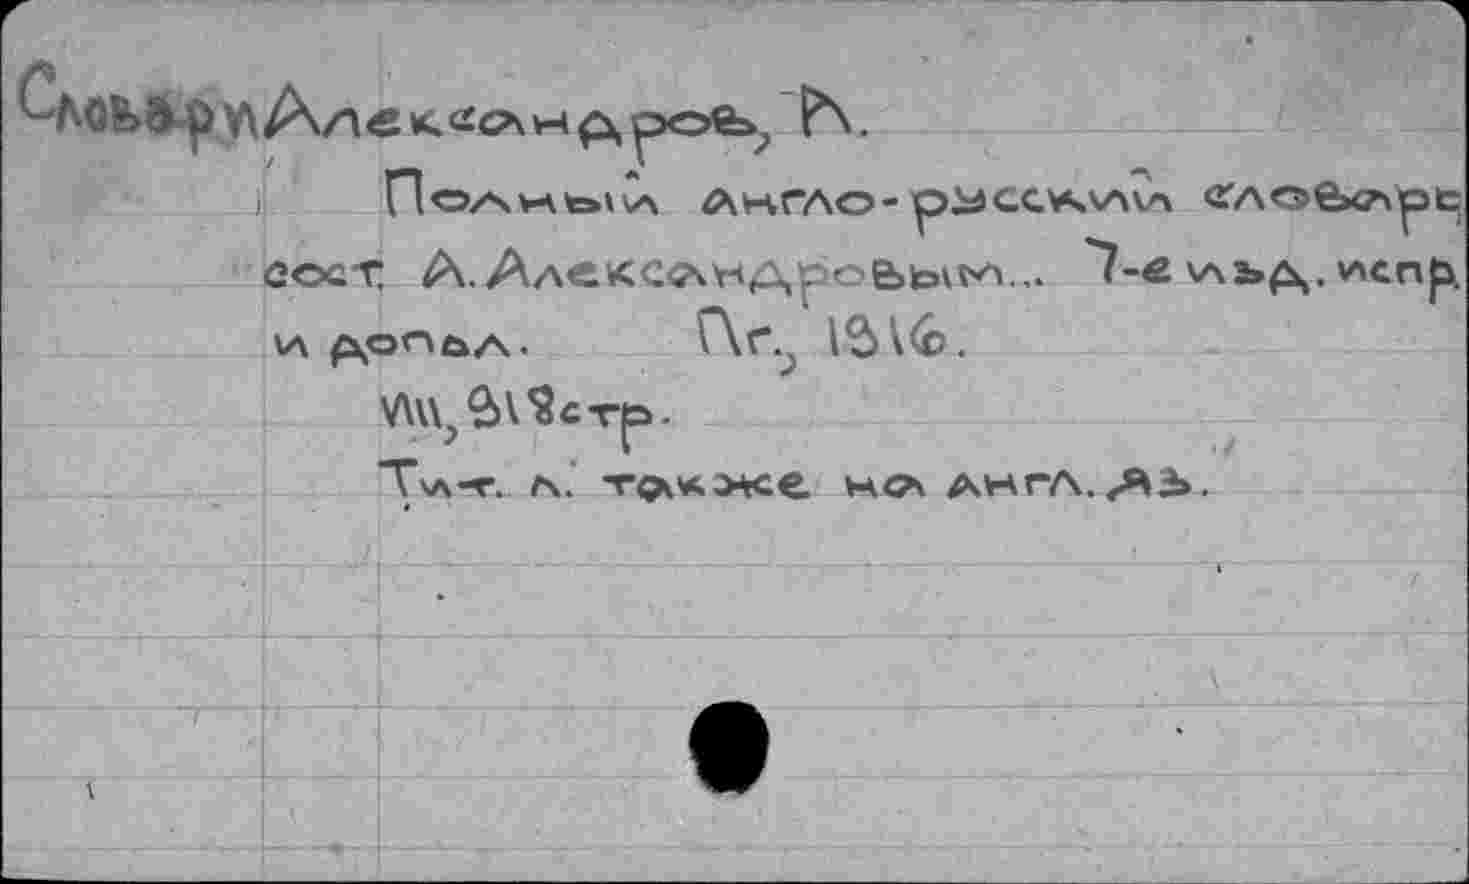 Словари Александров, А.
Полный англо-русский словарь
сост. А. Александровым... 7-е изд. испр.
и допол. Пг., 1916.
стр.
Тит. л. также на англ. яз.